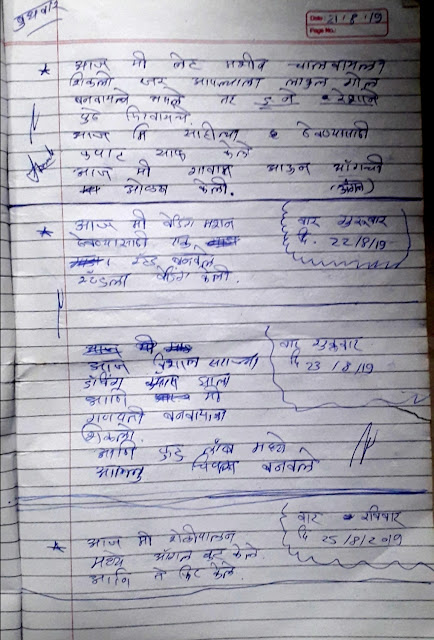 बुधवार
Date: 21/8/19
Page No.:
★ आज मी लेट मशीन चालवायला
शिकलो जर आपल्याला लाकुल गोल
बनवायचे असले तर
पुढे फिरवायचे.
आज मि साहीत्य ठेवण्यासाठी
कपाट साफ केले
आज मी गावात जाऊन
ओळख केली.
★ आज मी वेल्डिंग मशीन
ठेवण्यासाठी एक
स्टँड बनवले
स्टँडला वेल्डिंग केली.
वार गुरुवार
दि. 22/8/19
आज विशाल सरांच्या
आणि मी
गणपती बनवायला
शिकलो.
आणि फुड लॅब मध्ये
चिक्की बनवले
वार शुक्रवार
दि 23/8/19
★ आज मी शेळीपालन
मध्ये अँगल कट केले.
आणि ते फिट केले.
वार रविवार
दि 25/8/2019